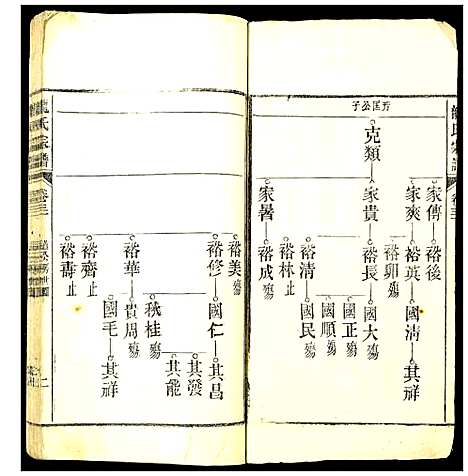 龍氏宗譜
卷三
子公匡芳
克類
家傳
家爽
家貴
家暑
裕後
裕英
裕卯殤
裕長
裕清
裕林止
裕成殤
國清
國大殤
國正殤
國順殤
國民
其祥
裕美殤
裕修
裕華
裕齊止
裕壽止
國仁
秋桂殤
貴周殤
國毛
其昌
其發
其能
其祥
龍氏宗譜
卷三
二